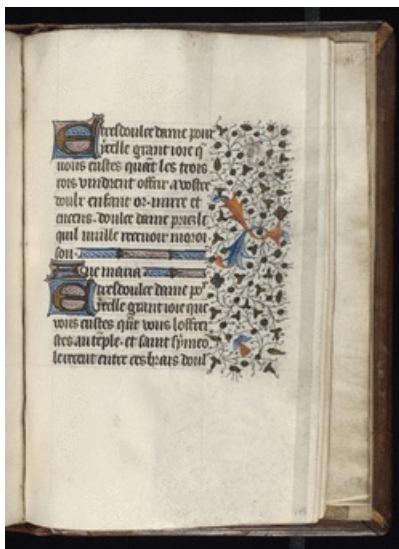 E tresdoulce dame pour
ycelle grant ioie q̄
vous eustes quāt les trois
rois vindrent offrir a vostre
doulx enfant or. mirre et
encens. doulce dame priez le
quil vuille recevoir moy oi
son.
Aue maria
E tresdoulce dame po͛
ycelle grant ioie que
vous eustes q̄nt vous loffri
stes au tēple. et saint symeō
le receut entre ces bras doul